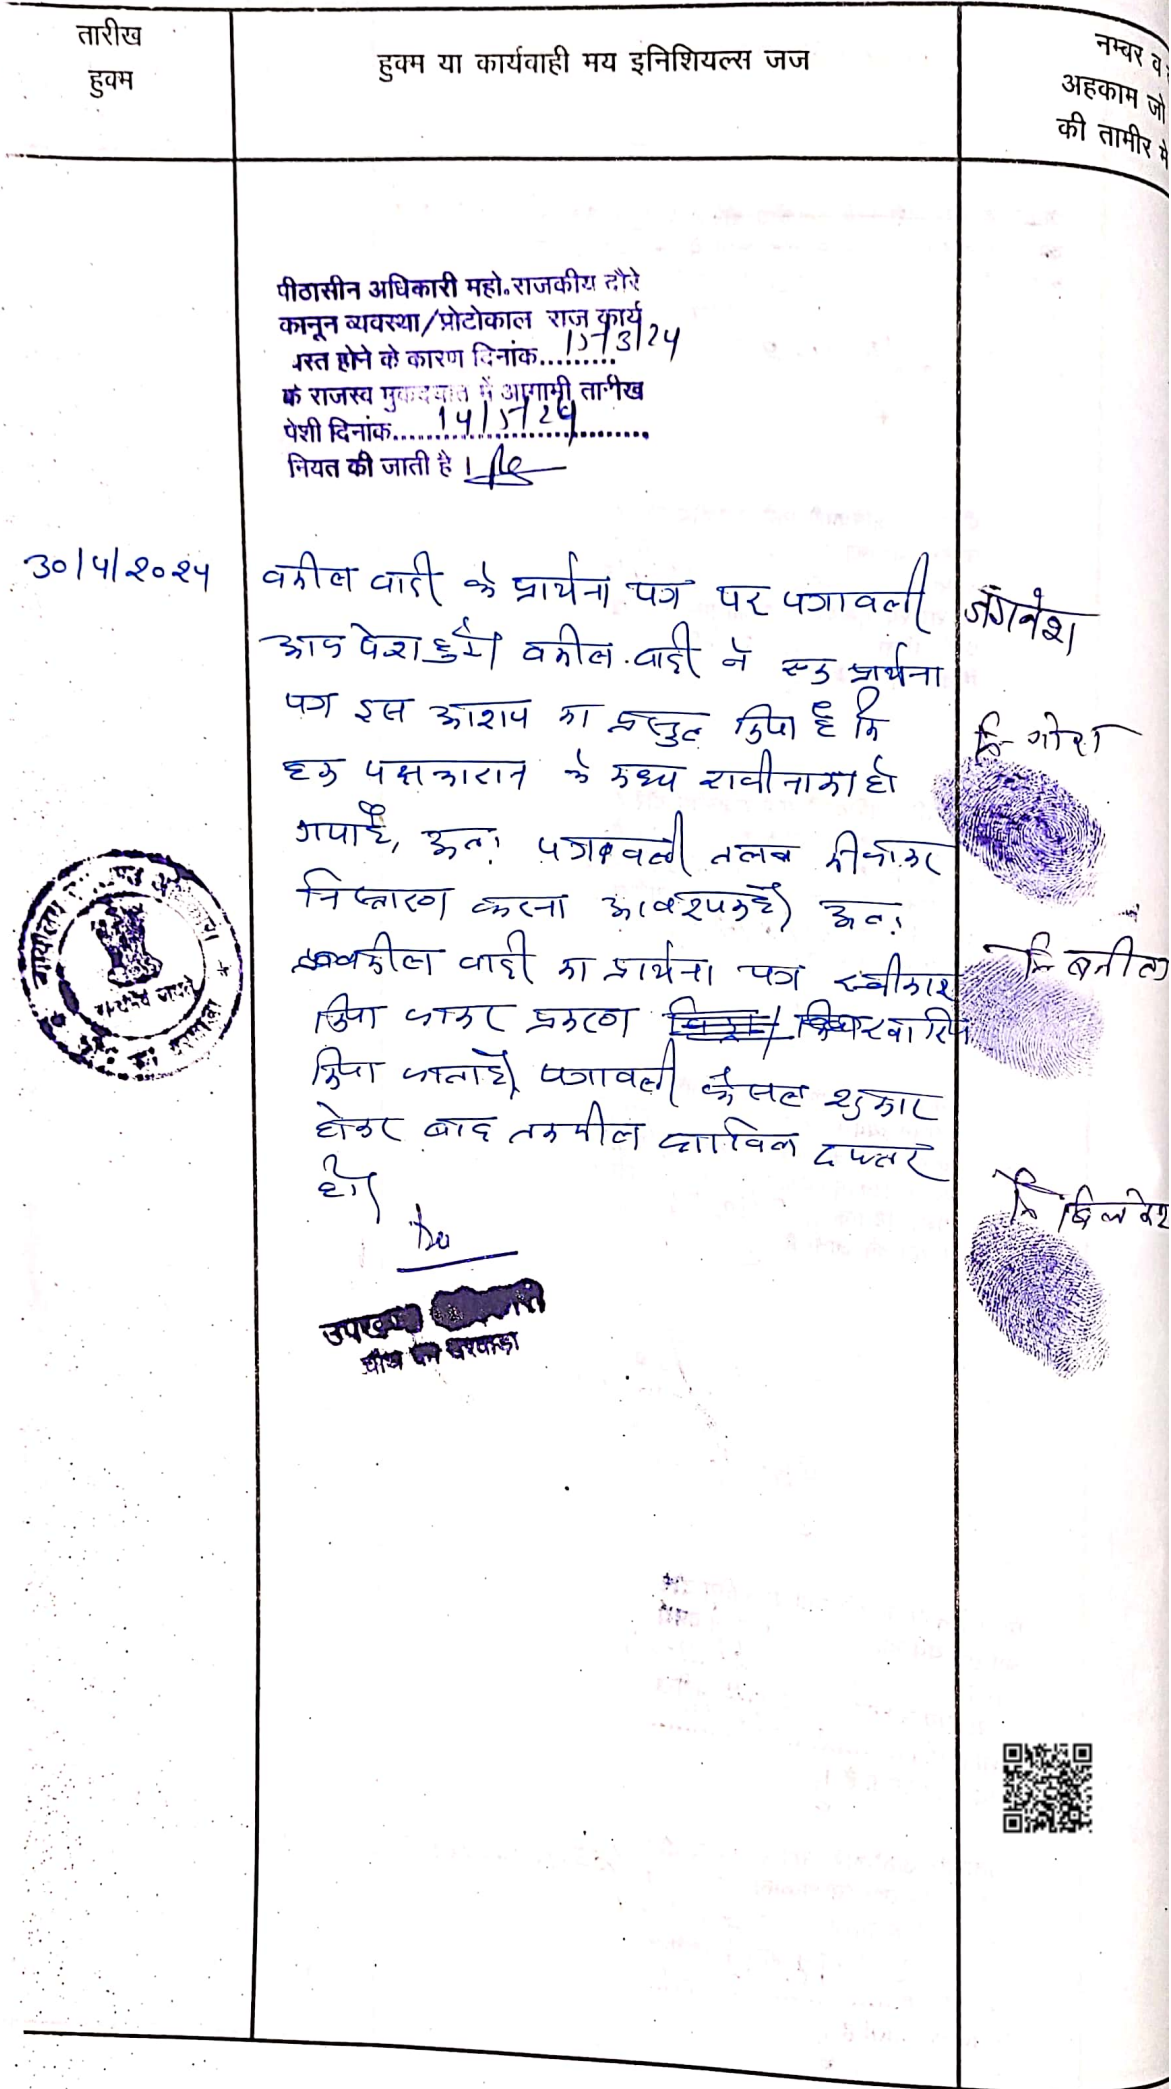 तारीख
हुक्म
हुक्म या कार्यवाही मय इनिशियल्स जज
नम्बर व
अहकाम जो
की तामीर मे
पीठासीन अधिकारी महो.राजकीय दौरे
कानून व्यवस्था/प्रोटोकाल राज कार्य
होने के कारण दिनांक.........
राजस्व में आगामी तारीख
पेशी दिनांक....
नियत की जाती है।
वकील वादी के प्रार्थना पत्र पर पत्रावली
आज पेश हुई। वकील वादी ने एक प्रार्थना
पत्र इस आशय का प्रस्तुत किया है कि
हम पक्षकारान के मध्य राजीनामा हो
गया है, अतः पत्रावली तलब की जाकर
निस्तारण करना आवश्यक है। अतः
वकील वादी का प्रार्थना पत्र स्वीकार
किया जाकर प्रकरण
किया जाता है। पत्रावली फैसल शुमार
होकर बाद तकमील दाखिल दफ्तर
हो।
जगनेश
नि गोरा
नि बनीता
सत्यमेव जयते